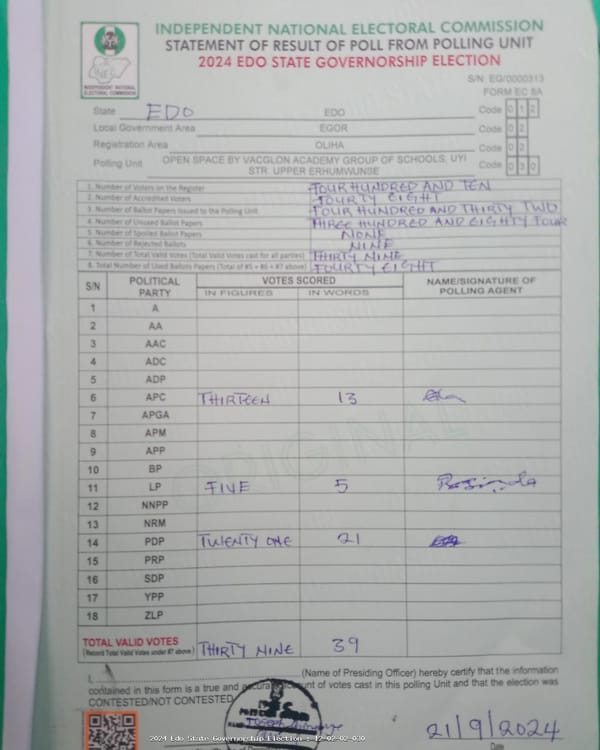 INDEPENDENT NATIONAL ELECTORAL COMMISSION
STATEMENT OF RESULT OF POLL FROM POLLING UNIT
2024 EDO STATE GOVERNORSHIP ELECTION
INDEPENDENT NATIONAL ELECTORAL COMMISSION
S/N: EG/0000313
FORM EC 8A
State EDO EDO Code 0 1 2
Local Government Area EGOR Code 0 2
Registration Area OLIHA Code 0 2
Polling Unit OPEN SPACE BY VACGLON ACADEMY GROUP OF SCHOOLS, UYI STR. UPPER ERHUMWUNSE Code 0 3 0
1. Number of Voters on the Register FOUR HUNDRED AND TEN
2. Number of Accredited Voters FOURTY EIGHT
3. Number of Ballot Papers Issued to the Polling Unit FOUR HUNDRED AND THIRTY TWO
4. Number of Unused Ballot Papers THREE HUNDRED AND EIGHTY FOUR
5. Number of Spoiled Ballot Papers NONE
6. Number of Rejected Ballots NINE
7. Number of Total Valid Votes (Total Valid Votes cast for all parties) THIRTY NINE
8. Total Number of Used Ballots Papers (Total of #5 + #6 + #7 above) FOURTY EIGHT
S/N POLITICAL PARTY VOTES SCORED NAME/SIGNATURE OF POLLING AGENT
IN FIGURES IN WORDS
1 A
2 AA
3 AAC
4 ADC
5 ADP
6 APC THIRTEEN 13
7 APGA
8 APM
9 APP
10 BP
11 LP FIVE 5
12 NNPP
13 NRM
14 PDP TWENTY ONE 21
15 PRP
16 SDP
17 YPP
18 ZLP
ORIGINAL
TOTAL VALID VOTES THIRTY NINE 39
(Record Total Valid Votes under #7 above)
I, (Name of Presiding Officer) hereby certify that the information
contained in this form is a true and accurate account of votes cast in this polling Unit and that the election was
CONTESTED/NOT CONTESTED
21/9/2024
Date
2024 Edo State Governorship Election : 12-02-02-030